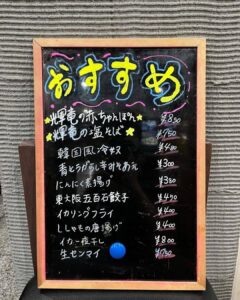 おすすめ
輝竜の赤ちゃんほうめん ¥850
輝竜の塩そば ¥750
韓国風冷奴 ¥400
青とうがらし冷みそあえ ¥300
にんにく素揚げ ¥350
東大阪五百石餃子 ¥450
イカリングフライ ¥400
ししゃもの唐揚げ ¥400
イカ一夜干し ¥800
生センマイ